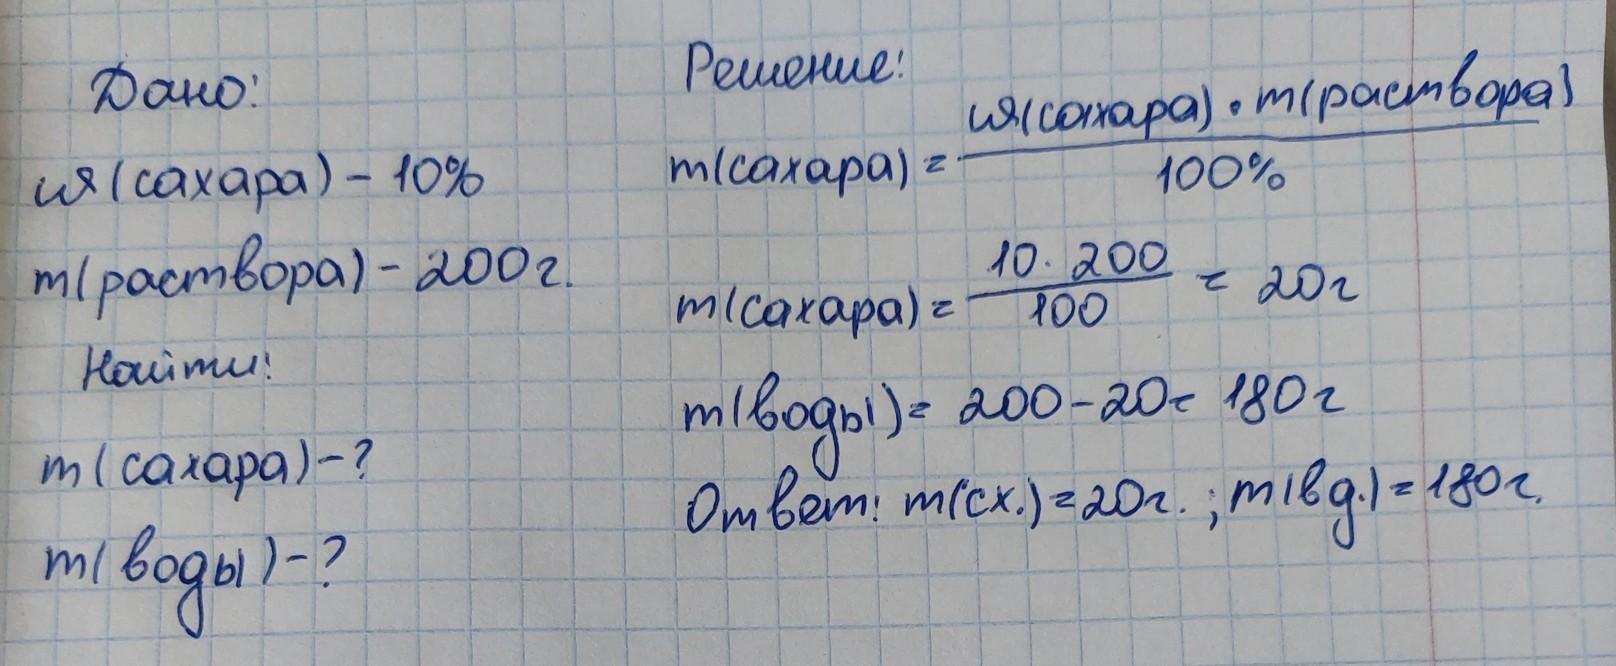 Дано:
ия(сахара) - 10%
m(раствора) - 200г.
Найти:
m(сахара) - ?
m(воды) - ?
Решение:
m(сахара) = ия(сахара) · m(раствора)
100%
m(сахара) = 10 · 200
100
= 20г
m(воды) = 200 - 20 = 180г
Ответ: m(сх.) = 20г. ; m(вд.) = 180г.